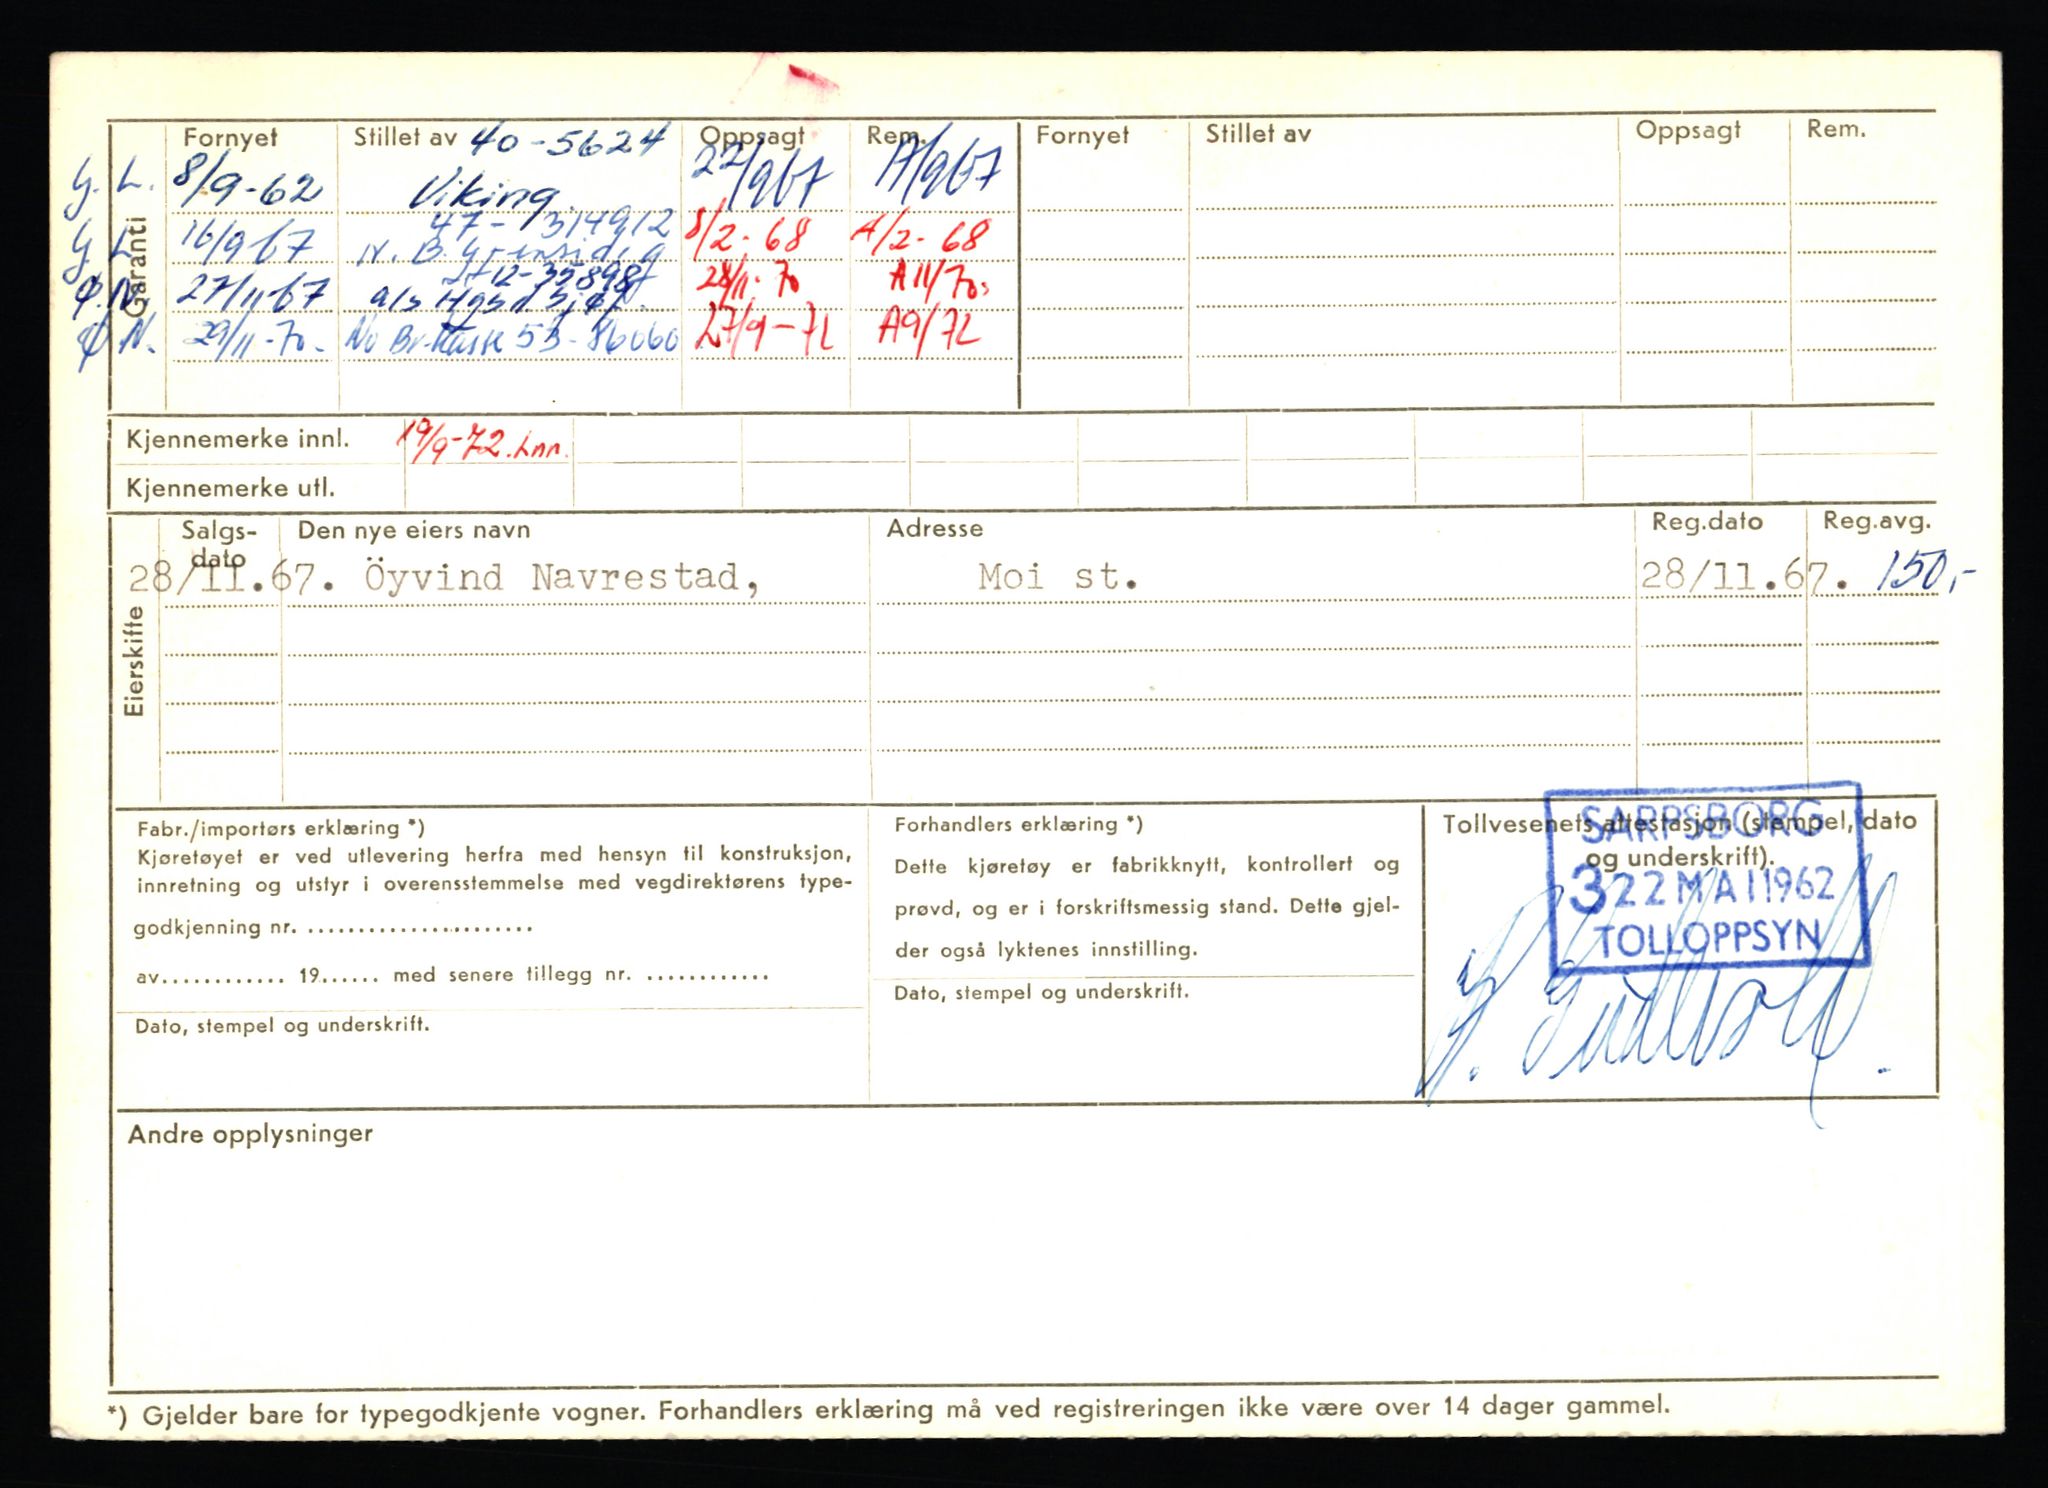 Fornyet Stillet av 40-5624 Oppsagt Rem. Fornyet Stillet av Oppsagt Rem.
G. L. 8/9-62 Viking 22/9 67 A/9 67
Garanti
G L 16/9 67 47-314912 8/2-68 A/2-68
N. B.
Ø.N. 27/11 67 12-35898 28/11-70 A 11/70.
Ø N. 29/11-70. No Br.kasse 53-86060 27/9-72 A9/72
Kjennemerke innl. 19/9-72. Lnn.
Kjennemerke utl.
Eierskifte
Salgs-dato Den nye eiers navn Adresse Reg.dato Reg.avg.
28/11.67. Öyvind Navrestad, Moi st. 28/11.67. 150,-
Fabr./importørs erklæring *)
Kjøretøyet er ved utlevering herfra med hensyn til konstruksjon,
innretning og utstyr i overensstemmelse med vegdirektørens type-
godkjenning nr. ......................
av............ 19...... med senere tillegg nr. ............
Dato, stempel og underskrift.
Forhandlers erklæring *)
Dette kjøretøy er fabrikknytt, kontrollert og
prøvd, og er i forskriftsmessig stand. Dette gjel-
der også lyktenes innstilling.
Dato, stempel og underskrift.
Tollvesenets attestasjon (stempel, dato
og underskrift).
SARPSBORG
3 22 MAI 1962
TOLLOPPSYN
Andre opplysninger
*) Gjelder bare for typegodkjente vogner. Forhandlers erklæring må ved registreringen ikke være over 14 dager gammel.